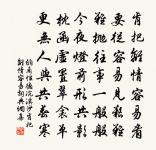 肯把離情容易看
要從容易見艱難
難拋往事一般般
今夜燈前形共影
枕函虛置翠衾單
更無人與共春寒
納蘭性德浣溪沙肯把
離情容易